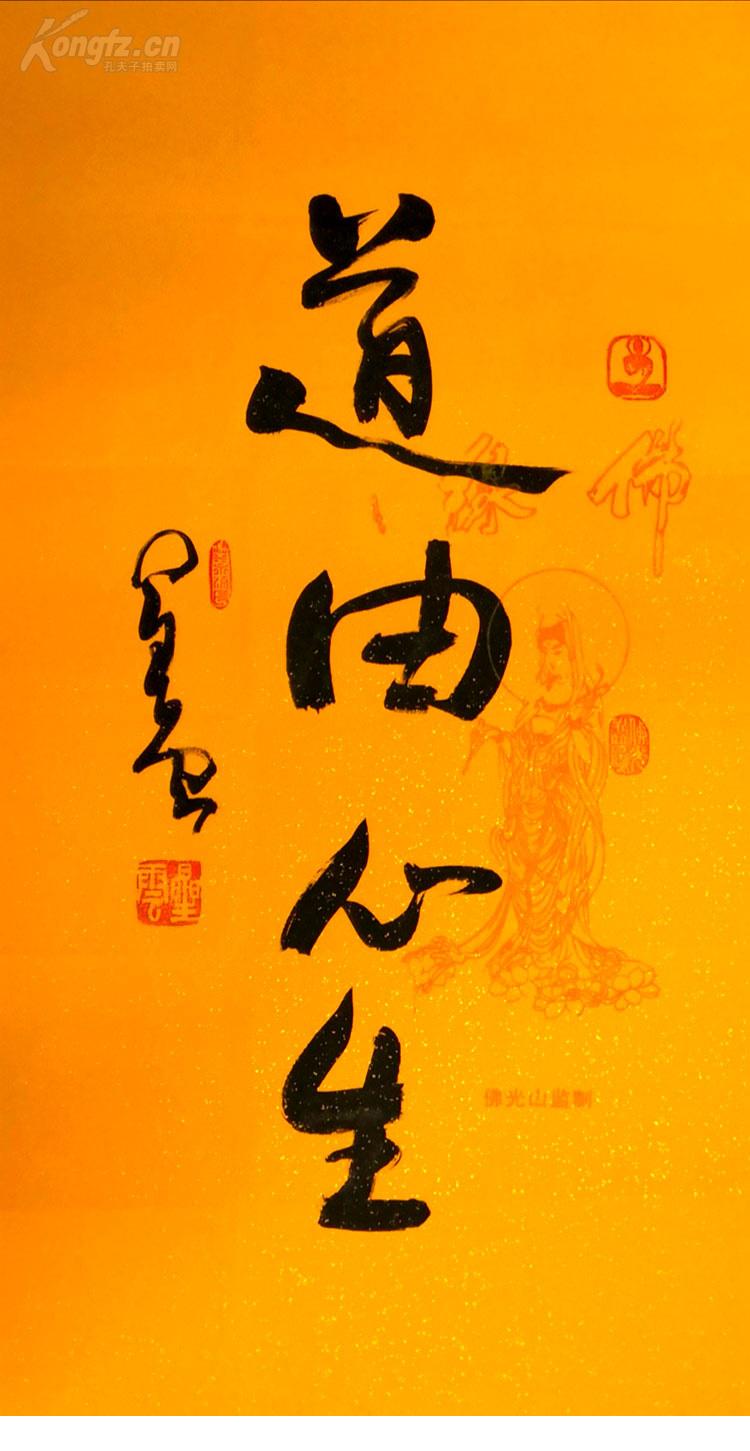 Kongfz.cn
孔夫子拍卖网
道由心生
星雲
佛缘
星雲
佛光山监制